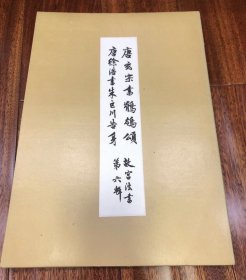 唐玄宗書鶺鴒頌
唐徐浩書朱巨川告身
故宮法書
第六輯